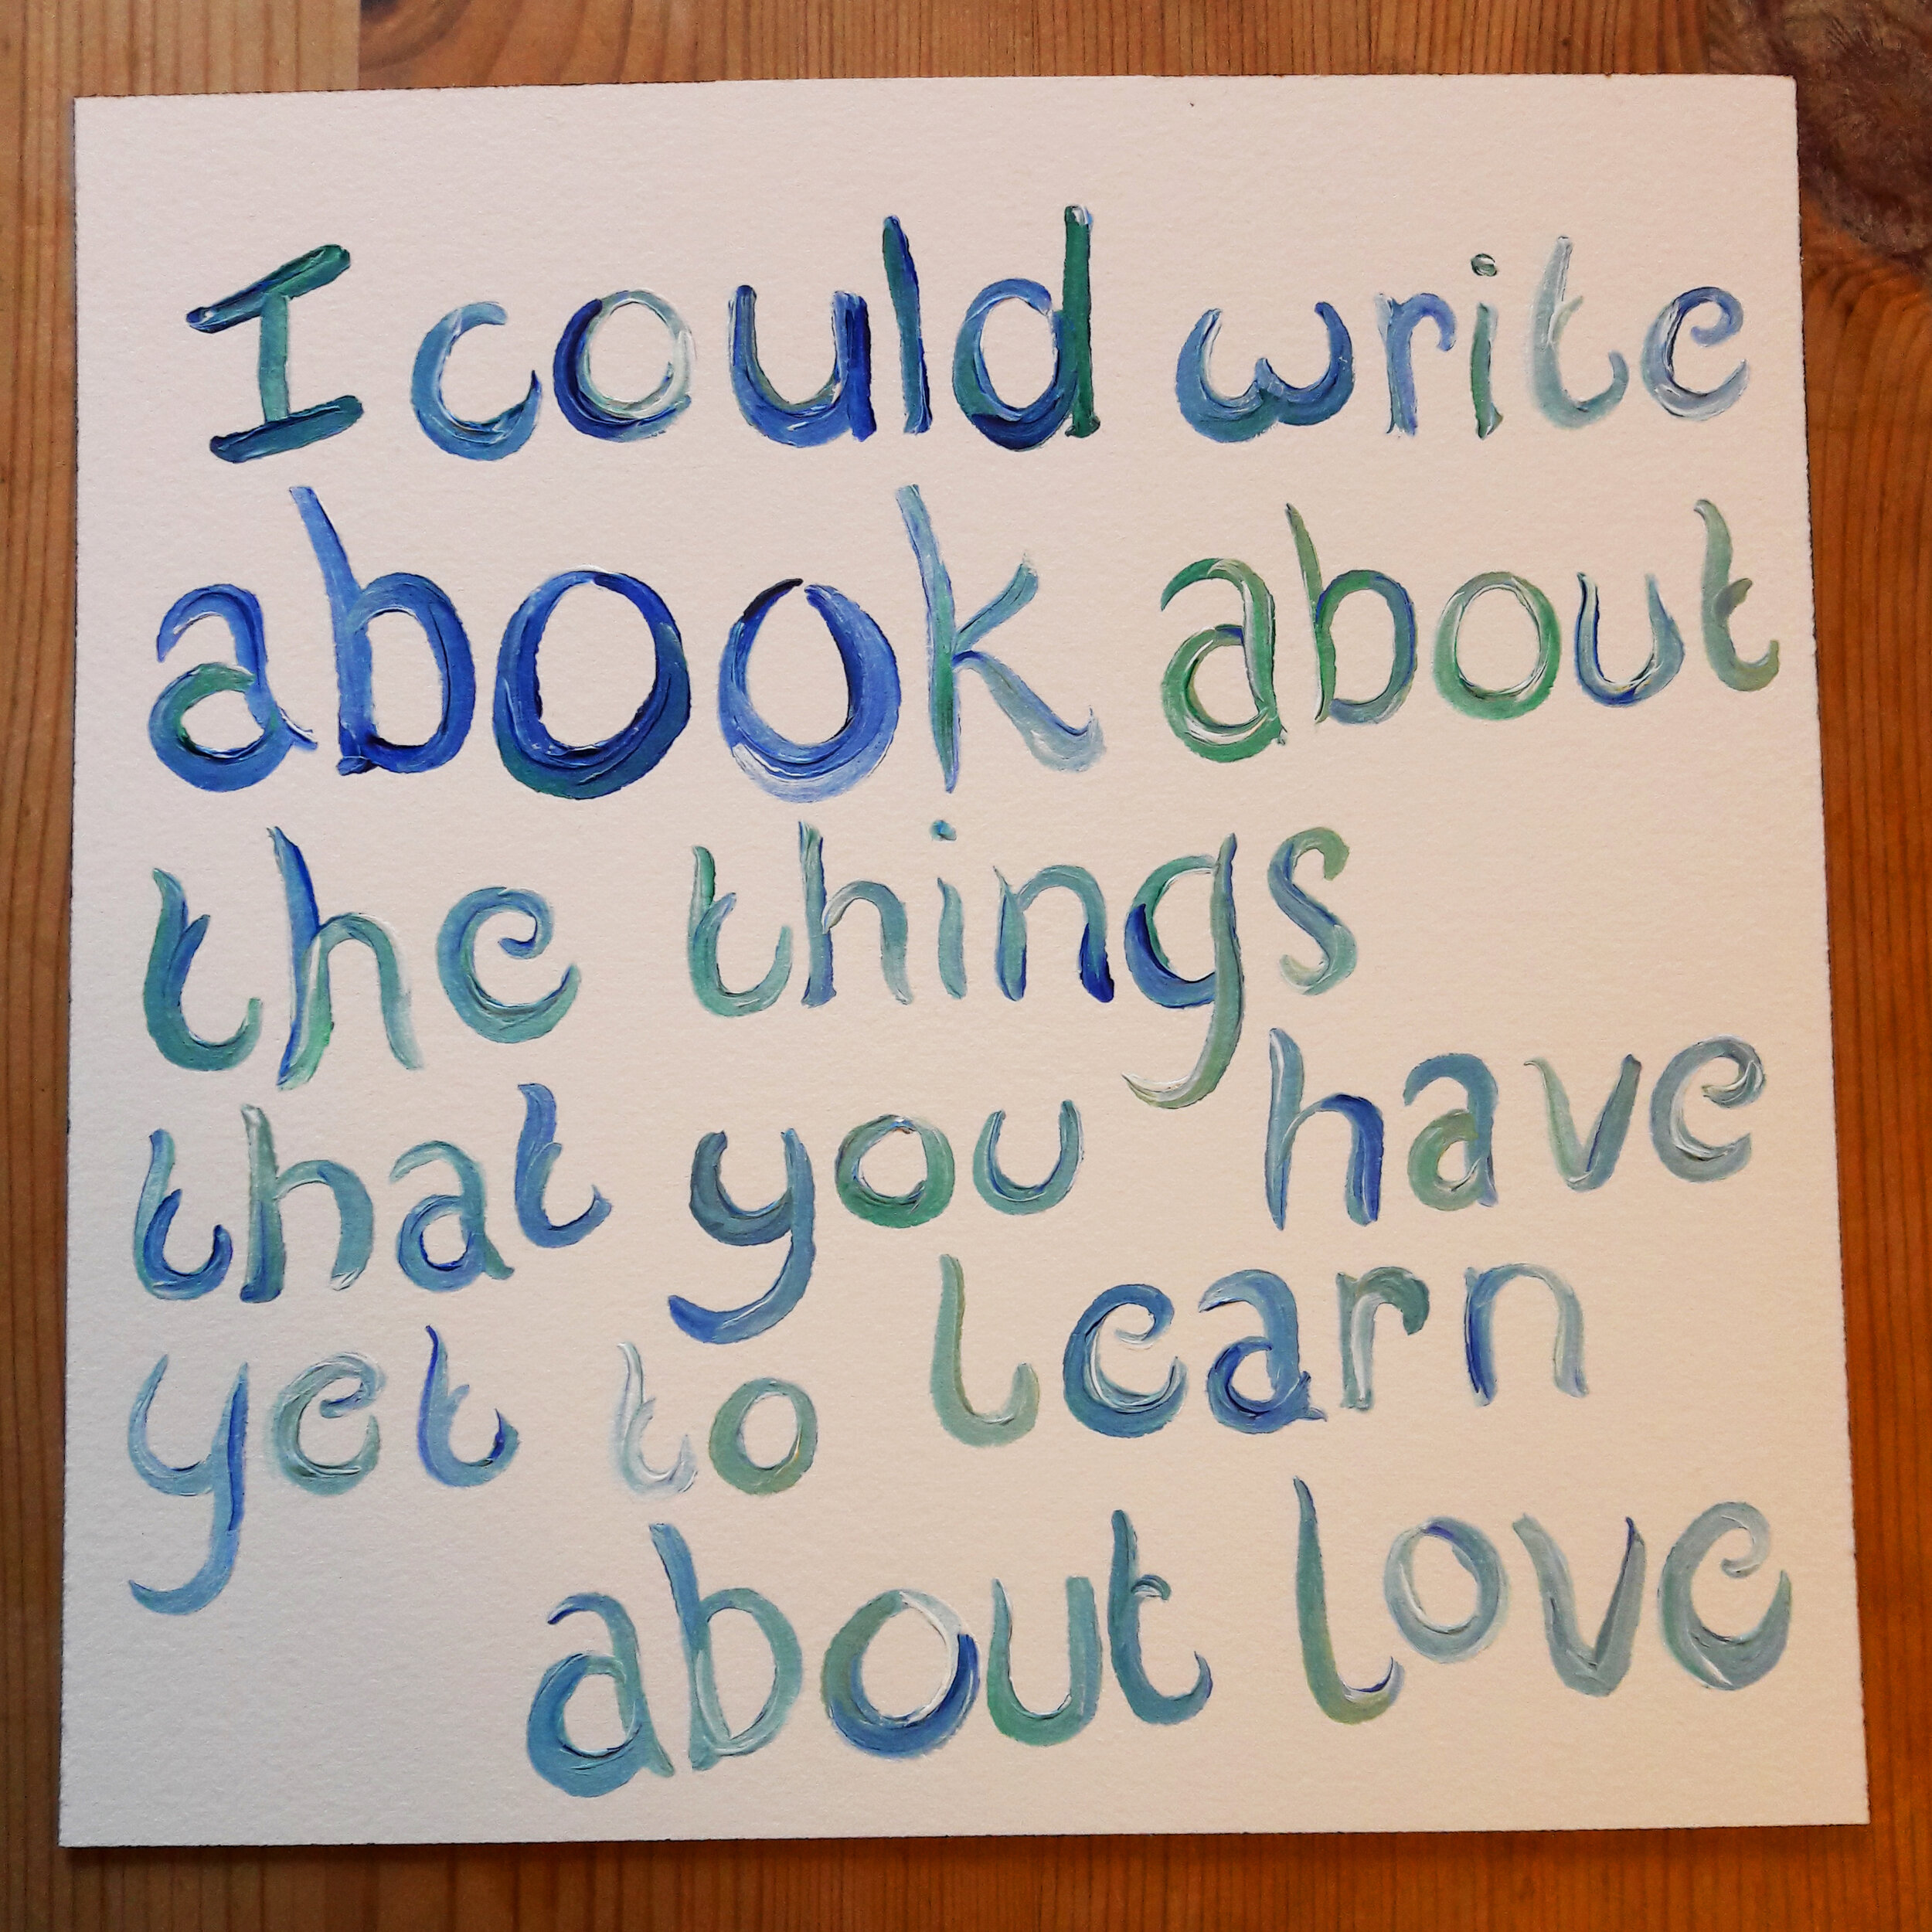 I could write
a book about
the things
that you have
yet to learn
about love